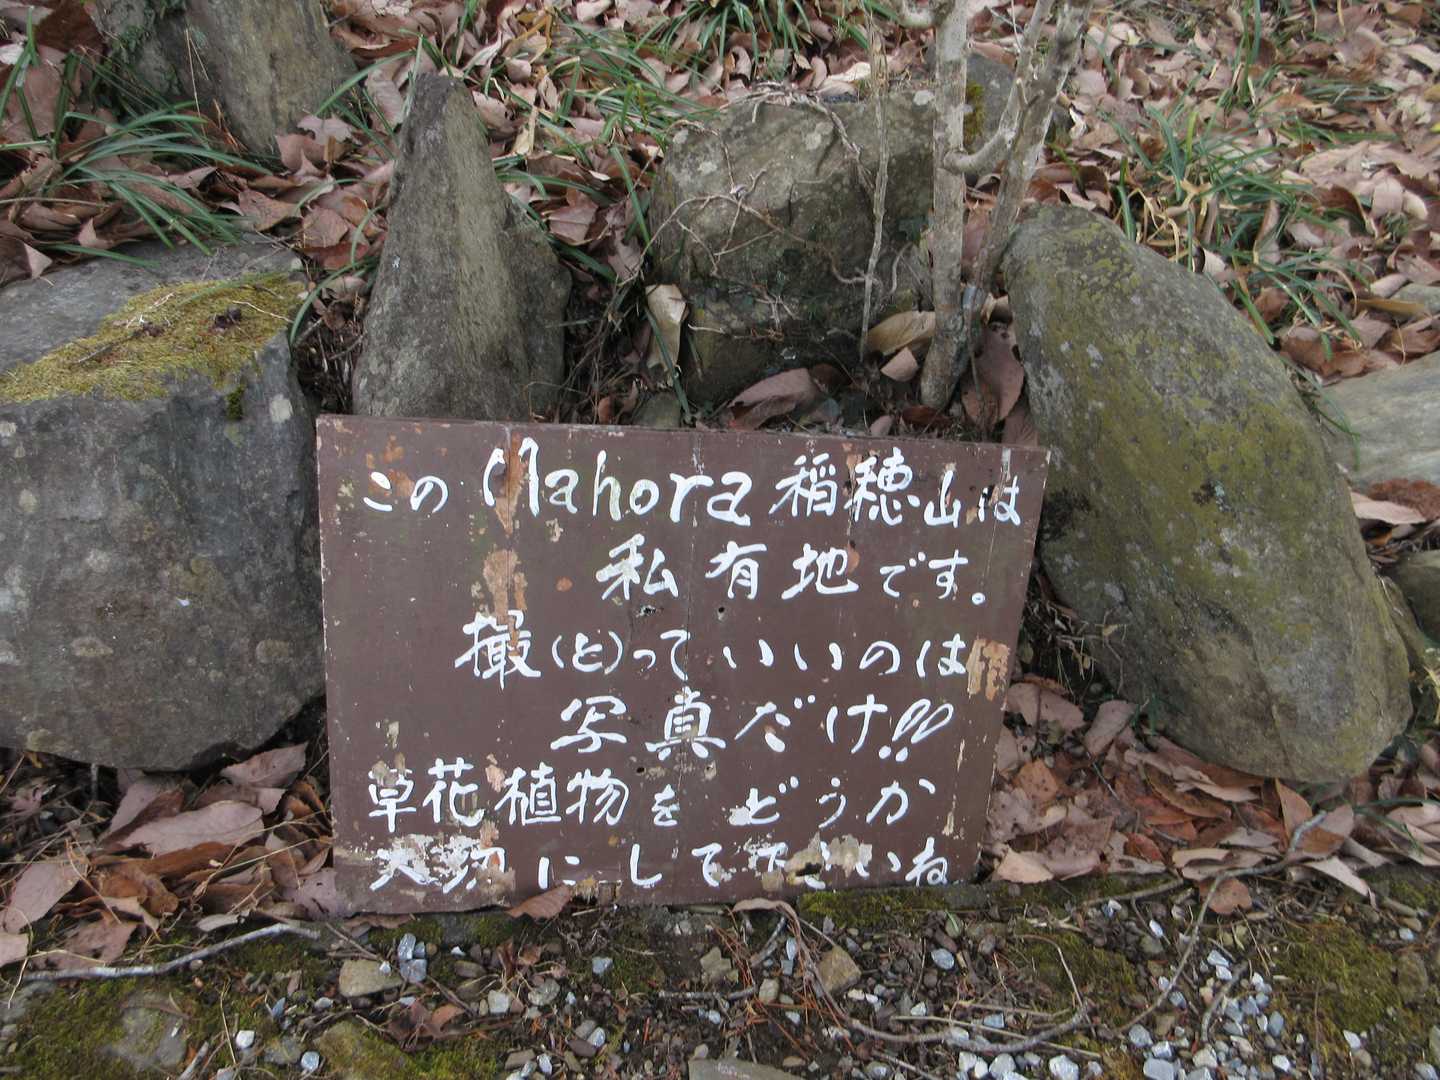 このMahora稲穂山は
私有地です。
撮(と)っていいのは
写真だけ!!
草花植物をどうか
大切にして下さいね